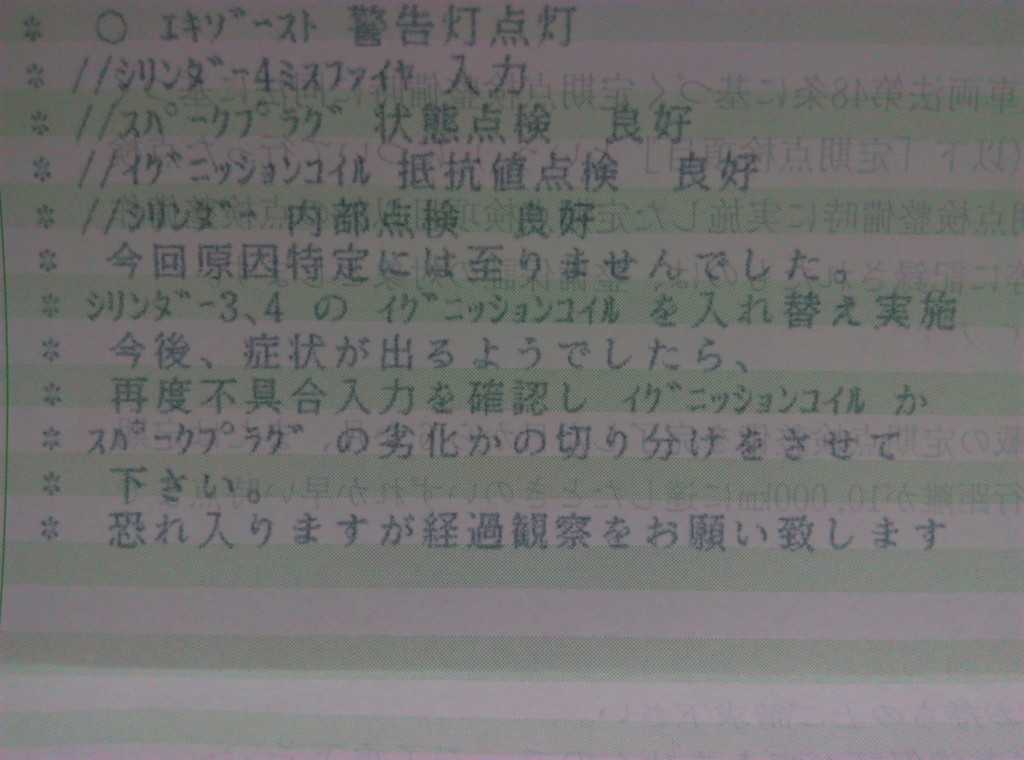 * ○ ｴｷｿﾞｰｽﾄ 警告灯点灯
* //ｼﾘﾝﾀﾞｰ4ﾐｽﾌｧｲﾔ 入力
* //ｽﾊﾟｰｸﾌﾟﾗｸﾞ 状態点検 良好
* //ｲｸﾞﾆｯｼｮﾝｺｲﾙ 抵抗値点検 良好
* //ｼﾘﾝﾀﾞｰ 内部点検 良好
* 今回原因特定には至りませんでした。
* ｼﾘﾝﾀﾞｰ3、4 の ｲｸﾞﾆｯｼｮﾝｺｲﾙ を入れ替え実施
* 今後、症状が出るようでしたら、
* 再度不具合入力を確認し ｲｸﾞﾆｯｼｮﾝｺｲﾙ か
* ｽﾊﾟｰｸﾌﾟﾗｸﾞ の劣化かの切り分けをさせて
* 下さい。
* 恐れ入りますが経過観察をお願い致します